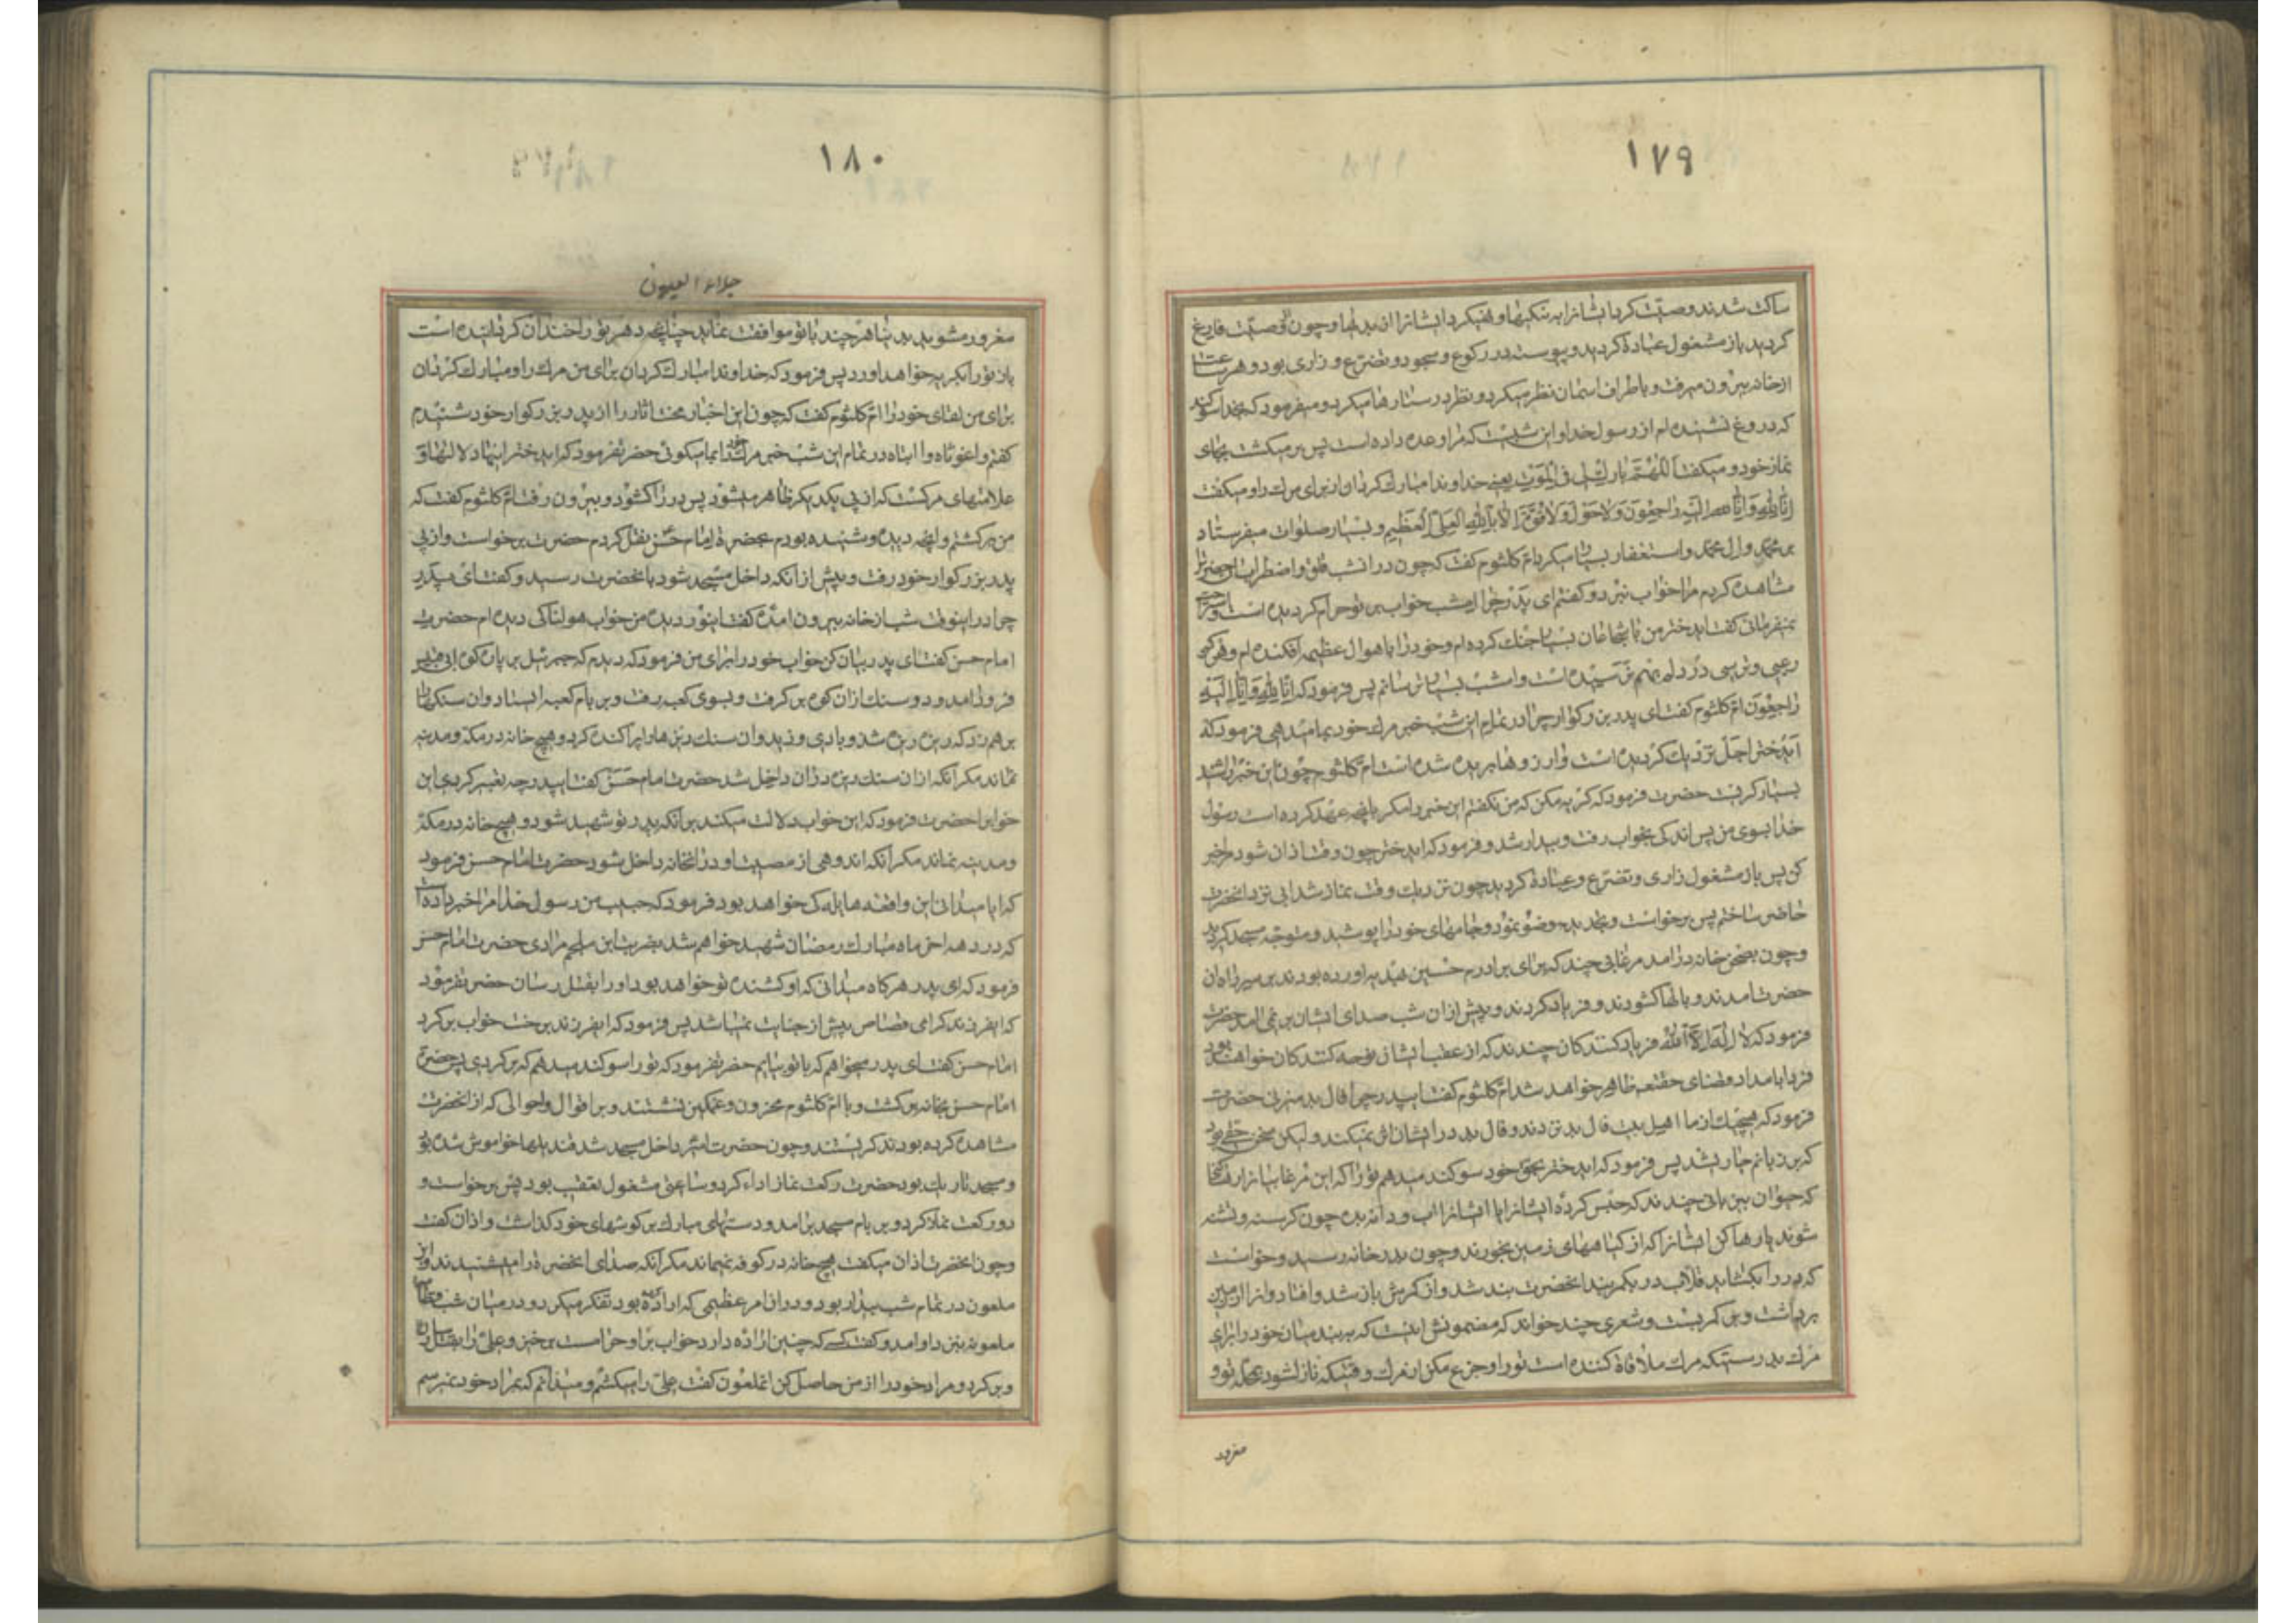 ۱۷۹
ساکت شدند و وصیّت کرد ایشانرا به نیکیها و نهی کرد ایشانرا از بدیها و چون از وصیّت فارغ
گردید باز مشغول عبادة گردید و پیوسته در رکوع و سجود و تضرّع و زاری بود و هر ساعت
از خانه بیرون میرفت و باطراف اسمان نظر میکرد و نظر در ستارها میکرد و میفرمود که بخدا سوکند
که دروغ نشنیده ام از رسول خدا و این شبیست که مرا وعده داده است پس بر میکشت بجای
نماز خود و میکفت اَللّهُمَّ بارِک لی فی المَوْتِ یعنے خداوندا مبارک کردان از برای من مرک را و میکفت
اِنّا لِلّهِ وَاِنّا اِلَیْهِ راجِعُونَ وَلا حَوْلَ وَلا قُوَّةَ اِلّا بِاللّهِ العَلِیِّ العَظِیمِ و بسیار صلوات میفرستاد
بر محمّد و ال محمّد و استغفار بسیار میکرد امّ کلثوم کفت که چون در انشب قلق و اضطراب انحضرترا
مشاهده کردم مرا خواب نبرد و کفتم ای پدر چرا امشب خواب بر تو حرام کردیده است و استراحت
نمیفرمائی کفت ایدختر من با شجاعان بسیار جنک کرده ام و خود را باهوال عظیمه افکنده ام و هرکز
رعبی و ترسی در دلم بهم نرسیده است و امشب بسیار ترسانم پس فرمود که اِنّا لِلّهِ وَاِنّا اِلَیْهِ
راجِعُونَ امّ کلثوم کفت ای پدر بزرکوار چرا در تمام این شب خبر مرک خود بما میدهی فرمود که
ایدختر اجل نزدیک کردیده است و ارزوها بریده شده است امّ کلثوم چون این خبر را شنید
بسیار کریست حضرت فرمود که کریه مکن که من نکفتم این خبر را مکر بانچه عهد کرده است رسول
خدا بسوی من پس اندکی بخواب رفت و بیدار شد و فرمود که ایدختر چون وقت اذان شود مرا خبر
کن پس باز مشغول زاری و تضرّع و عبادة کردید چون نزدیک وقت نماز شد ابی نزد انحضرت
حاضر ساختم پس برخواست و تجدید وضو نمود و جامهای خود را پوشید و متوجّه مسجد کردید
و چون بصحن خانه در امد مرغابی چند که برای برادرم حسین هدیه اورده بودند بر سر راه ان
حضرت امدند و بالها کشودند و فریاد کردند و پیش از ان شب صدای ایشان بر نمی امد حضرت
فرمود که لا اِلهَ اِلَّا اللّهُ فریاد کنندکان چندند که از عقب ایشان نوحه کنندکان خواهند بود
فردا بامداد قضای حقتعه ظاهر خواهد شد امّ کلثوم کفت ایپدر چرا فال بد میزنی حضرت
فرمود که هیچیک از ما اهل بیت فال بد نزدند و فال بد در ایشان اثر نمیکند و لیکن سخن حقّے بود
که بر زبانم جاری شد پس فرمود که ایدختر بحقّ خود سوکند میدهم تو را که این مرغابیانرا رها کن
که حیوان بیزبانی چندند که حبس کردهٔ ایشانرا یا ایشانرا اب و دانه بده چون کرسنه و تشنه
شوند یا رها کن ایشانرا که از کیاههای زمین بخورند و چون بدر خانه رسید و خواست
که در را بکشاید قلاب در بکمربند انحضرت بند شد و از کمرش باز شد و افتاد و انرا از زمین
برداشت و بر کمر بست و شعری چند خواند که مضمونش اینست که به بند میان خود را برای
مرک بدرستیکه مرک ملاقاة کننده است تو را و جزع مکن از مرک وقتیکه نازل شود بمحلّهٔ تو و
مغرور
۱۸۰
جلاء العیون
مغرور مشو بدینا هرچند با تو موافقت نماید چنانچه دهر تو را خندان کردانیده است
باز تو را بکریه خواهد اورد پس فرمود که خداوندا مبارک کردان برای من مرک را و مبارک کردان
برای من لقای خود را امّ کلثوم کفت که چون این اخبار محنت اثار را از پدر بزرکوار خود شنیدم
کفتم واغوثاه وا ابتاه در تمام این شب خبر مرک خود را بما میکوئی حضرت فرمود که ایدختر اینها دلالتها و
علامتهای مرکست که از پی یکدیکر ظاهر میشود پس در را کشود و بیرون رفت امّ کلثوم کفت که
من برکشتم و انچه دیده و شنیده بودم بحضرة امام حسن نقل کردم حضرت برخواست و از پی
پدر بزرکوار خود رفت و پیش از انکه داخل مسجد شود بانحضرت رسید و کفت ای پدر
چرا در اینوقت شب از خانه بیرون امدهٔ کفت اینور دیده من خواب هولناکی دیده ام حضرت
امام حسن کفت ای پدر بیان کن خواب خود را برای من فرمود که دیدم که جبرئیل بر بالای کوه ابی قبیس
فرود امد و دو سنک از ان کوه برکرفت و بسوی کعبه رفت و بر بام کعبه ایستاد و ان سنکها را
بر هم زد که ریزه ریزه شد و بادی وزید و ان سنک ریزها را پراکنده کرد و هیچ خانه در مکّه و مدینه
نماند مکر انکه از ان سنک ریزه در ان داخل شد حضرت امام حسن کفت ایپدر چه تعبیر کردی این
خوابرا حضرت فرمود که این خواب دلالت میکند بر انکه پدر تو شهید شود و هیچ خانه در مکّه
و مدینه نماند مکر انکه اندوهی از مصیبت او در انخانه داخل شود حضرت امام حسن فرمود
که ایا میدانی این واقعه هایله کی خواهد بود فرمود که حبیب من رسول خدا مرا خبر داده است
که در دهه اخر ماه مبارک رمضان شهید خواهم شد بضربت ابن ملجم مرادی حضرت امام حسن
فرمود که ای پدر هرکاه میدانی که او کشنده تو خواهد بود او را بقتل رسان حضرت فرمود
که ایفرزند کرامی قصاص پیش از جنایت نمیباشد پس فرمود که ایفرزند برخت خواب برکرد
امام حسن کفت ای پدر میخواهم که با تو بیایم حضرت فرمود که تو را سوکند میدهم که برکردی پس حضرت
امام حسن بخانه برکشت و با امّ کلثوم محزون و غمکین نشستند و بر اقوال و احوالی که از انحضرت
مشاهده کرده بودند کریستند و چون حضرت امیر داخل مسجد شد قندیلها خواموش شده بود
و مسجد تاریک بود حضرت رکعت نماز اداء کرد و ساعتی مشغول تعقیب بود پس برخواست و
دو رکعت نماز کرد و بر بام مسجد برامد و دستهای مبارک بر کوشهای خود کذاشت و اذان کفت
و چون انحضرت اذان میکفت هیچ خانه در کوفه نمیماند مکر انکه صدای انحضرة را میشنیدند و ان
ملعون در تمام شب بیدار بود و در ان امر عظیمی که اراده کرده بود تفکّر میکرد و در میان شب قطام
ملعونه بنزد او امد و کفت کسے که چنین اراده دارد خواب بر او حرامست برخیز و علی را بقتل رسان
و برکرد و مراد خود را از من حاصل کن انملعون کفت علیّ را میکشم و میدانم که بمراد خود نمیرسم